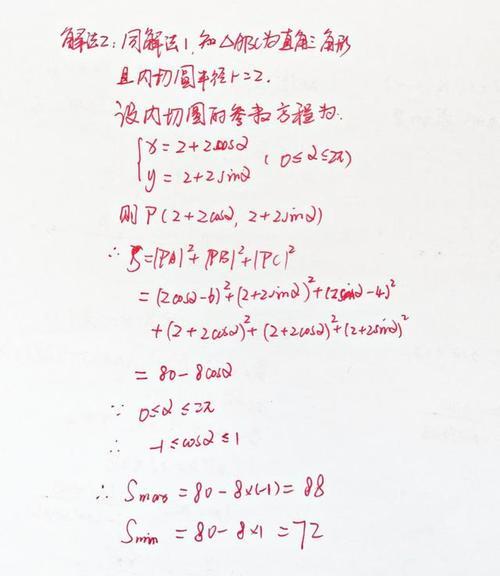 解法2：同解法1，知△ABC为直角三角形
且内切圆半径r=2.
设内切圆的参数方程为:
{x=2+2cosα
y=2+2sinα (0≤α≤2π)
则P(2+2cosα, 2+2sinα)
∴ S=|PA|²+|PB|²+|PC|²
=(2cosα-6)²+(2+2sinα)²+(2sinα-4)²
+(2+2cosα)²+(2+2cosα)²+(2+2sinα)²
=80-8cosα
∵ 0≤α≤2π
∴ -1≤cosα≤1
∴ Smax=80-8×(-1)=88
Smin=80-8×1=72